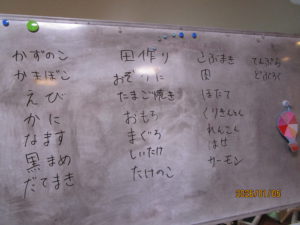 かずのこ
かまぼこ
えび
かに
なます
黒まめ
だてまき
田作り
おぞうに
たまご焼き
おもち
まぐろ
しいたけ
たけのこ
こぶまき
肉
ほたて
くりきんとん
れんこん
はす
サーモン
てんぷら
どぶろく
2025/01/05